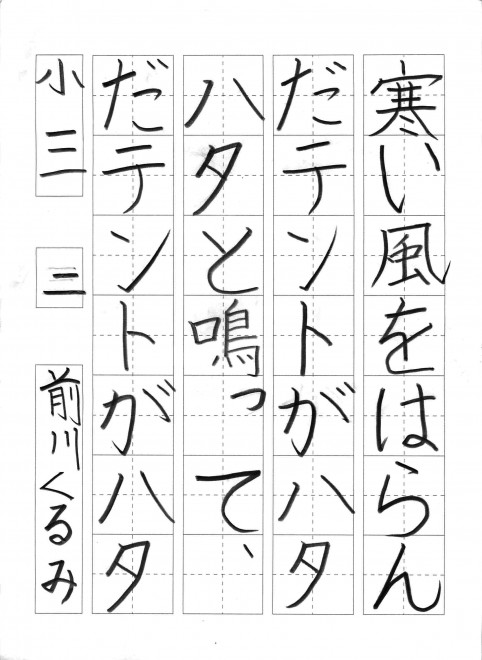 寒い風をはらん
だテントがハタ
ハタと鳴って、
だテントがハタ
小三 二 前川くるみ